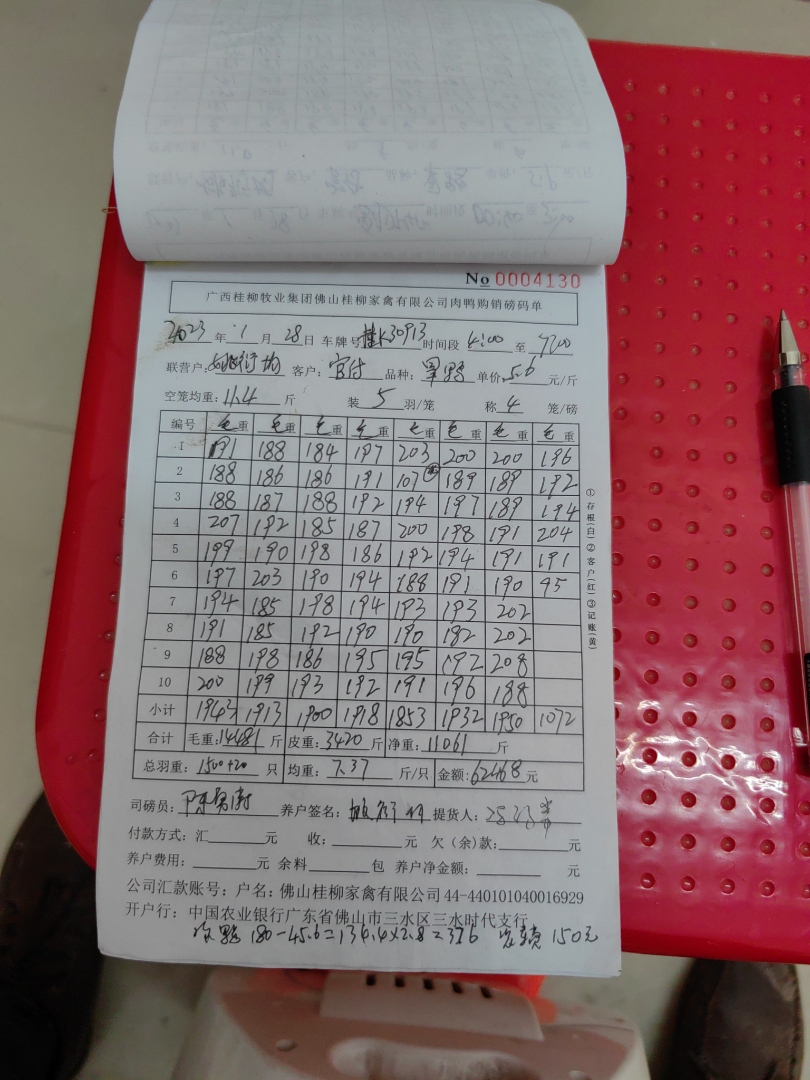 No 0004130
广西桂柳牧业集团佛山桂柳家禽有限公司肉鸭购销磅码单
2023 年 1 月 28 日 车牌号 桂K30913 时间段 4:00 至 7:00
联营户: 客户: 品种: 单价 5.6 元/斤
空笼均重: 11.4 斤 装 5 羽/笼 称 4 笼/磅
编号 毛重 毛重 毛重 毛重 毛重 毛重 毛重 毛重
1 191 188 184 197 203 200 200 196
2 188 186 186 191 107 189 189 192
3 188 187 188 192 194 197 189 194
4 207 192 185 187 200 198 191 204
5 199 190 198 186 192 194 191 191
6 197 203 190 194 188 191 190 95
7 194 185 198 194 193 193 202
8 191 185 192 190 190 182 202
9 188 198 186 195 195 192 208
10 200 199 193 192 191 196 188
小计 1943 1913 1900 1918 1853 1932 1950 1072
合计 毛重: 14481 斤 皮重: 3420 斤 净重: 11061 斤
总羽重: 1500+20 只 均重: 7.37 斤/只 金额: 62468 元
司磅员: 养户签名: 提货人:
付款方式: 汇 元 收: 元 欠(余)款: 元
养户费用: 元 余料 包 养户净金额: 元
公司汇款账号: 户名: 佛山桂柳家禽有限公司 44-440101040016929
开户行: 中国农业银行广东省佛山市三水区三水时代支行
180-45.6=134.4×2.8=376 150元
①存根(白)②客户(红)③记账(黄)